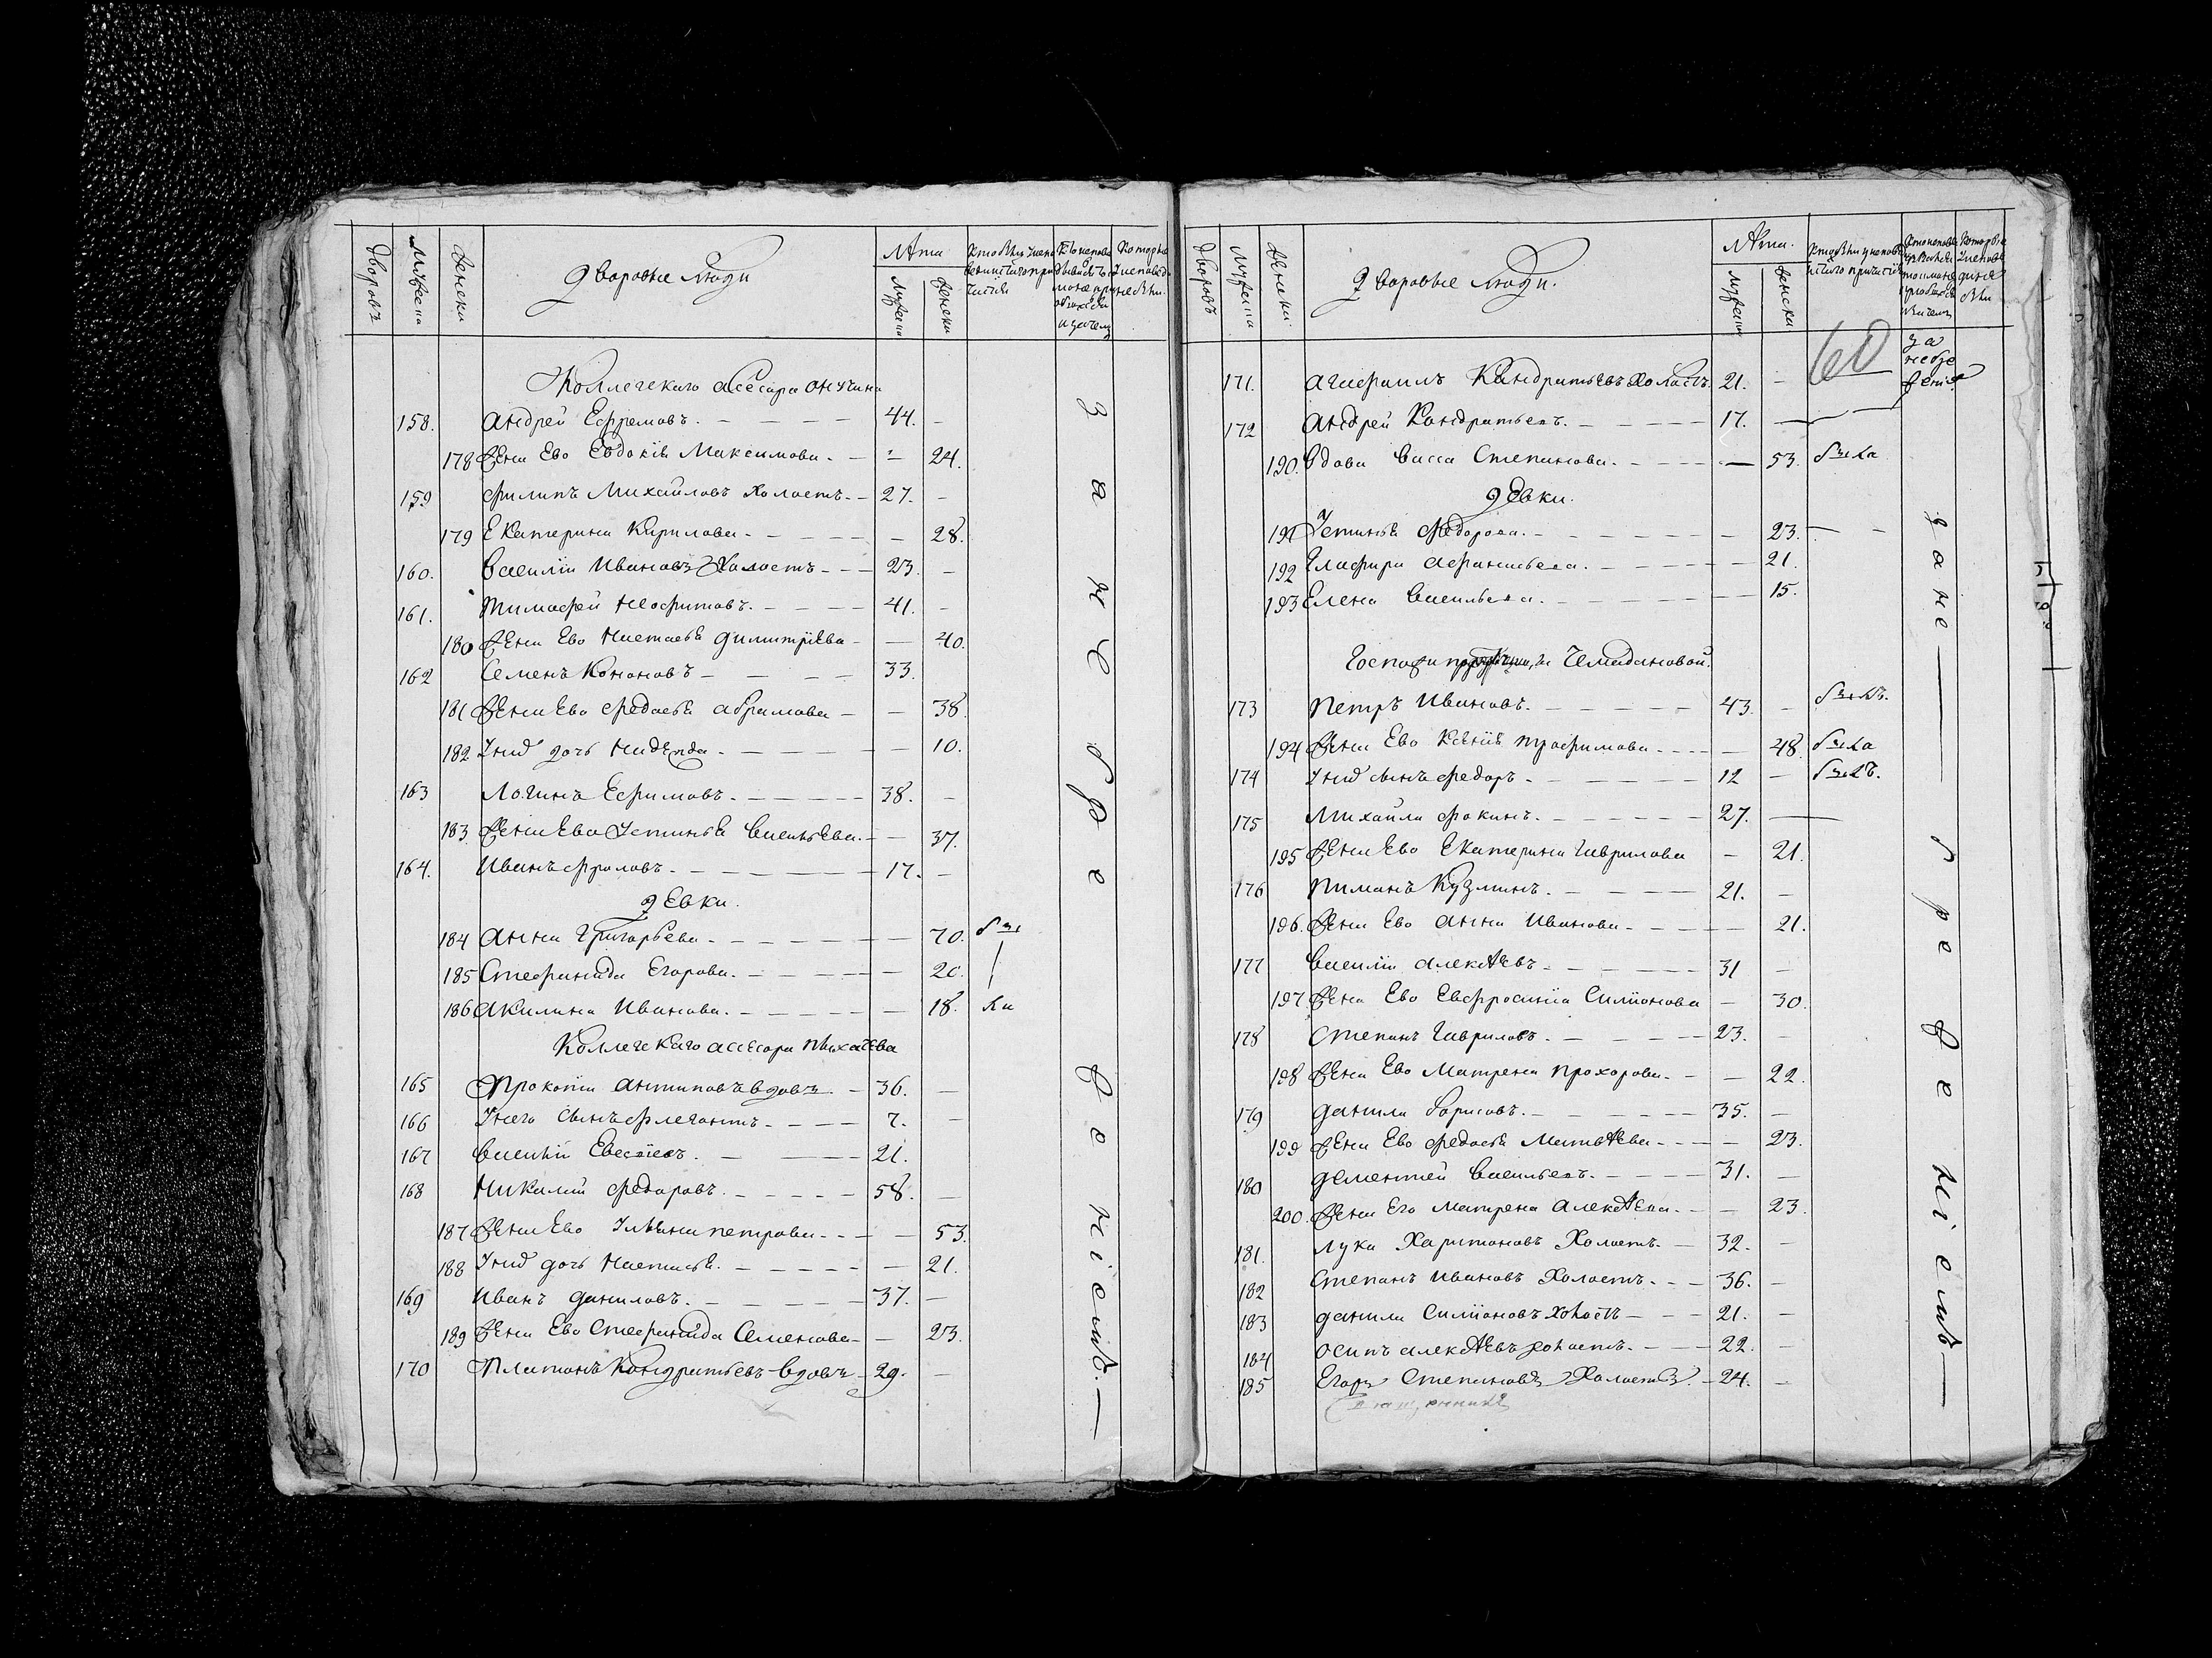 Дворовъ Мужеска Женска Дворовые Люди Лѣта Мужеска Женска
Коллежскаго асесора Онучина
158. Андрей Ефремовъ. 44.
178 Жена Ево Евдокія Максимова. 24.
159 Филипъ Михайловъ холостъ. 27.
179 Екатерина Кирилова. 28.
160. Василіи Ивановъ Холостъ 23.
161. Тимофей Неофитовъ. 41.
180 Жена Ево Настасья Димитріева 40.
162 Семенъ Кононовъ 33.
181 Жена Ево Федосья Абрамова 38.
182 Ихъ дочь Надежда. 10.
163 Логинъ Ефимовъ. 38.
183. Жена Ево Устинья Васильева. 37.
164. Иванъ Фроловъ. 17.
Девки.
184 Анна Григорьева. 70.
185 Стефанида Егорова. 20.
186 Акилина Иванова. 18. ли
Коллежскаго асесора
165 Прокопіи Антиповъ вдовъ 36.
166 Унего сынъ Флегонтъ. 7.
167 Василіи 21.
168 Николаи Федоровъ. 58.
187 Жена Ево Ульяна петрова 53.
188 Ихъ дочь Настасья. 21.
169 Иванъ Даниловъ. 37.
189 Жена Ево Стефанида Семенова 23.
170 Платонъ Кондратьевъ вдовъ 29.
за небреженіемъ.
Дворовъ Мужеска Женски Дворовые Люди. Лѣта. Мужеска Женска
60
за небрежение
171. Агафоилъ Кандратьевъ холостъ. 21.
172 Андрей Кондратьевъ. 17.
190. Вдова Васса Степанова. 53. была
Девки.
191 Устинья Федорова. 23.
192 Глафира Афанасьева. 21.
193 Елена Васильева. 15.
Госпожи Чемадановой.
173 Петръ Ивановъ. 43. былъ.
194 Жена Ево Ксенія Трофимова 48. была
174 Ихъ сынъ Федоръ. 12 былъ.
175 Михайла Фокинъ. 27.
195 Жена Ево Екатерина Гаврилова 21.
176 Пиманъ Кузминъ. 21.
196. Жена Ево Анна Иванова 21.
177 Василіи Алексѣевъ. 31
197 Жена Ево Евфросинія Симіонова 30.
178 Степанъ Гавриловъ. 23.
198 Жена Ево Матрена Прохорова. 22.
179 Данила Борисовъ. 35.
199 Жена Ево Федосья Матвѣева 23.
180 Дементей Васильевъ. 31.
200. Жена Его Матрена Алексѣева. 23.
181. Лука Харитоновъ Холостъ. 32.
182 Степанъ Ивановъ Холостъ. 36.
183 Данила Симіоновъ Холостъ 21.
184 Осипъ Алексѣевъ холостъ. 22.
185 Егоръ Степановъ Холостъ. 24.
за небреженіемъ